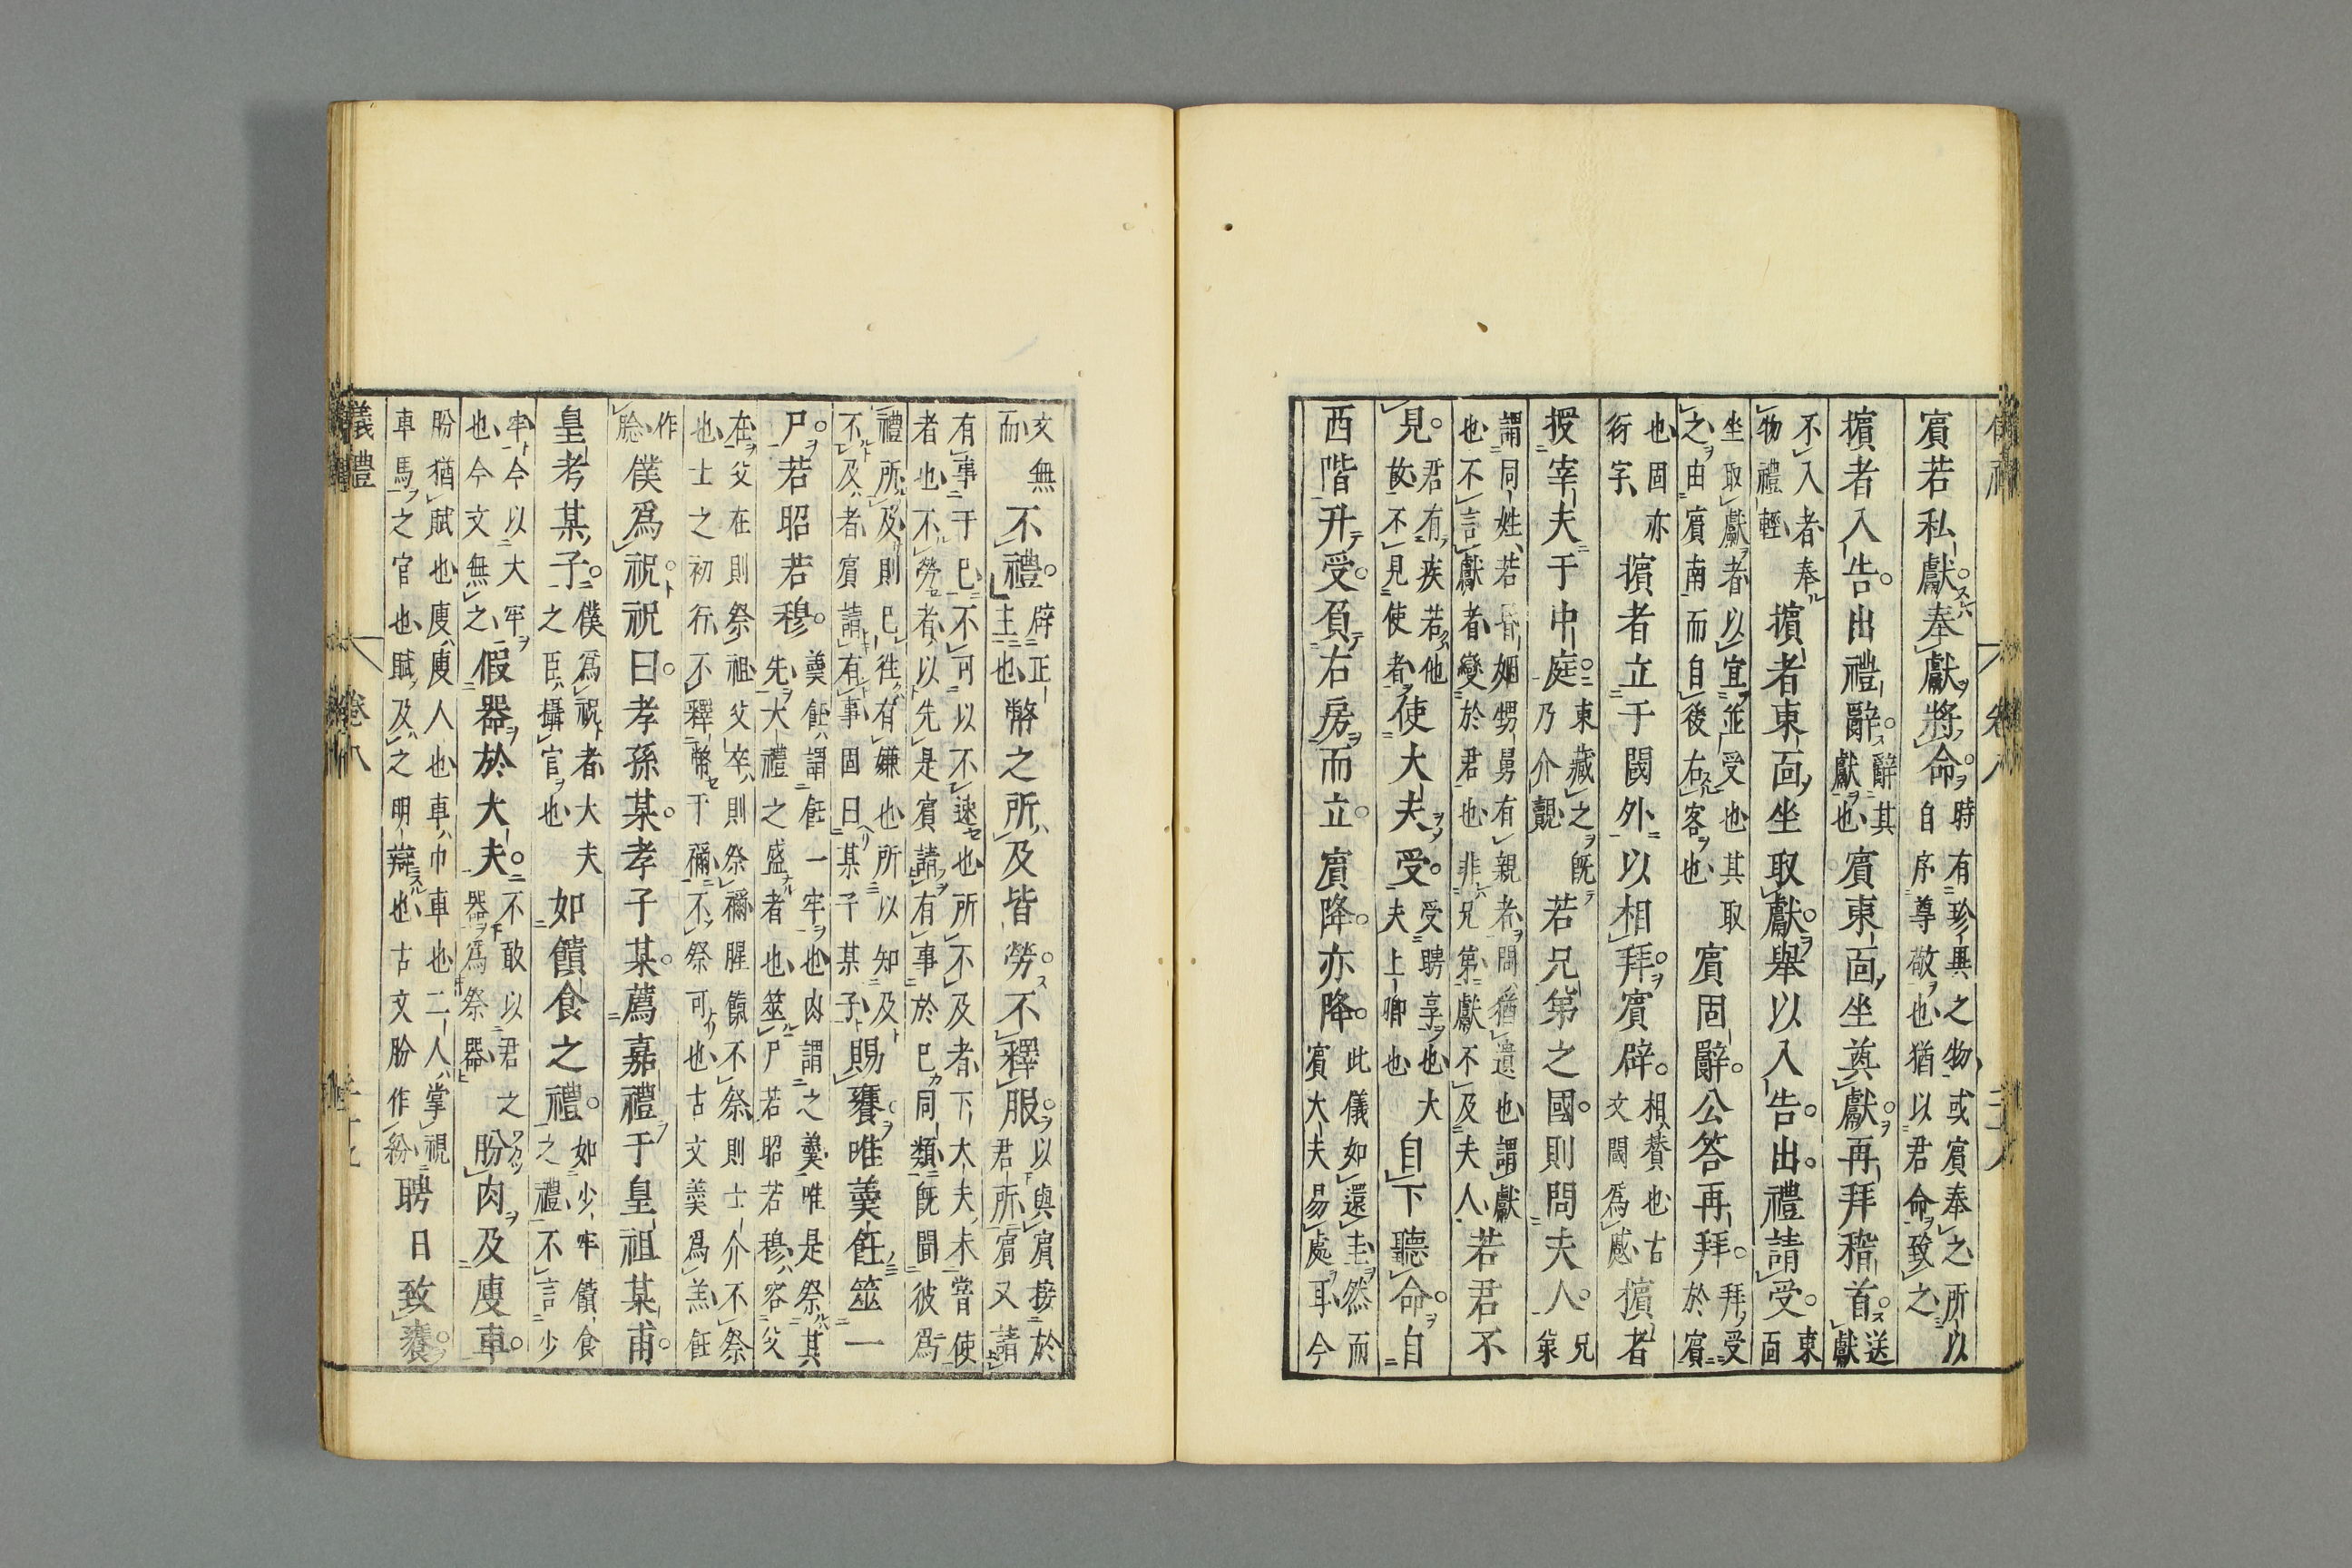 賔若私獻奉獻將命時有珍異之物或賔奉之所以
自序尊敬也猶以君命致之
擯者入告出禮辭辭其獻也賔東面坐奠獻再拜稽首送獻
不入者奉物禮輕擯者東面坐取獻舉以入告出禮請受東面
坐取獻者以宜並受也其取之由賔南而自後右客也賔固辭公答再拜拜受於賔
也固亦衍字擯者立于閾外以相拜賔辟相贊也古文閾爲蹙擯者
授宰夫于中庭東藏之既乃介覿若兄第之國則問夫人兄第
謂同姓若昏姻甥舅有親者問猶遺也謂獻也不言獻者變於君也非兄第獻不及夫人若君不
見君有疾若他故不見使者使大夫受受聘享也大夫上卿也自下聽命自
西階升受負右房而立賔降亦降此儀如還圭然而賔大夫易處耳今
文無而不禮辟正主也幣之所及皆勞不釋服以與賔接於君所賔又請
有事于己不可以不速也所不及者下大夫未嘗使者也不勞者以先是賔請有事於己同類既聞彼爲
禮所及則己往有嫌也所以知及不及者賔請有事固曰某子某子賜饔唯羹飪筮一
尸若昭若穆羹飪謂飪一牢也肉謂之羹唯是祭其先大禮之盛者也筮尸若昭若穆容父
在父在則祭祖父卒則祭禰腥餼不祭則士介不祭也士之初行不釋幣于禰不祭可也古文羹爲羔飪
作腍僕爲祝祝曰孝孫某孝子某薦嘉禮于皇祖某甫
皇考某子僕爲祝者大夫之臣攝官也如饋食之禮如少牢饋食之禮不言少
牢今以大牢也今文無之假器於大夫不敢以君之器爲祭器肦肉及廋車
肦猶賦也廋廋人也車巾車也二人掌視車馬之官也賦及之明辯也古文肦作紛聘日致饔
儀禮
卷八